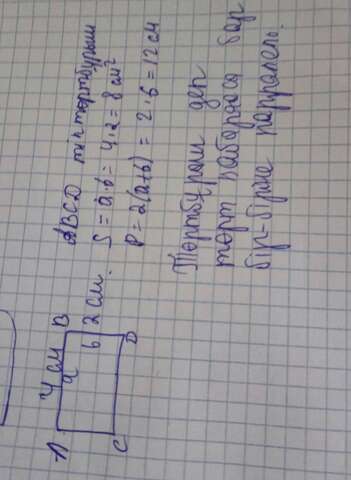 ABCD тік төртбұрыш
S = a·b = 4·2 = 8 см²
P = 2(a+b) = 2·6 = 12 см
A 4 см B
a
b 2 см.
C D
Төртбұрыш деп
төрт қабырғасы бар
бір-біріне параллель.